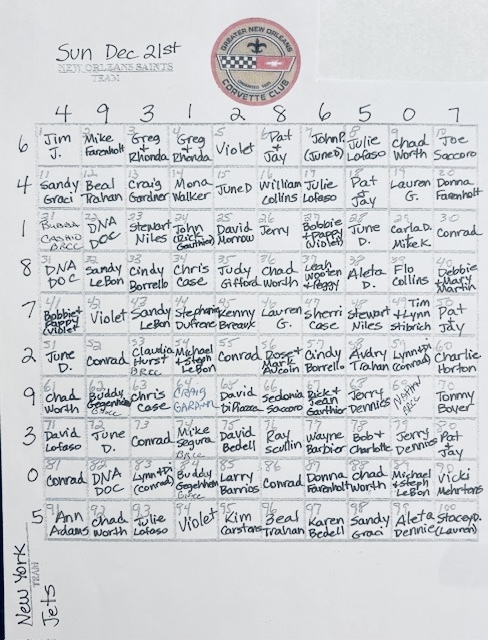 Sun Dec 21st
NEW ORLEANS SAINTS
TEAM
GREATER NEW ORLEANS
CORVETTE CLUB
4 9 3 1 2 8 6 5 0 7
6 Jim J. Mike Farenholt Greg + Rhonda Greg + Rhonda Violet Pat + Jay John P. (June D) Julie Lofaso Chad Worth Joe Saccoro
4 Sandy Graci Beal Trahan Craig Gardner Mona Walker June D William Collins Julie Lofaso Pat + Jay Lauren G. Donna Farenholt
1 BUBBA CASHIO BRCC DNA DOC Stewart Niles John (Rick Gauthier) David Morrow Jerry Bobbie + Pappy (Violet) June D. Carla D. Mike K. Conrad
8 DNA DOC Sandy LeBon Cindy Borrello Chris Case Judy Gifford Chad Worth Leah Wooten + Peggy Aleta D. Flo Collins Debbie + Mary Martin
7 Bobbie + Pappy (Violet) Violet Sandy LeBon Stephanie Dufrene Kenny Breaux Lauren G. Sherri Case Stewart Niles Tim + Lynn Stibrich Pat + Jay
2 June D. Conrad Claudia Hurst BRCC Michael + Steph LeBon Conrad Rose + Mark Aucoin Cindy Borrello Audry Trahan Lynn + Di (Conrad) Charlie Horton
9 Chad Worth Buddy Gegenheim BRCC Chris Case CRAIG GARDNER David DiPiazza Sedonia Saccoro Rick + Jean Gauthier Jerry Dennies BRCC Tommy Boyer
3 David Lofaso June D. Conrad Mike Segura BRCC David Bedell Ray Scullin Wayne Barbier Bob + Charlotte Jerry Dennies Pat + Jay
0 Conrad DNA DOC Lynn + Di (Conrad) Buddy Gegenheim BRCC Larry Barrios Conrad Donna Farenholt Chad Worth Michael + Steph LeBon Vicki Mehrtens
5 Ann Adams Chad Worth Julie Lofaso Violet Kim Carstens Beal Trahan Karen Bedell Sandy Graci Aleta Dennie Stacey D. (Lauren)
New York
TEAM
Jets